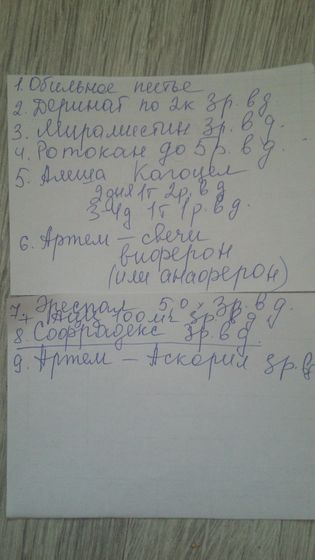 1. Обильное питье
2. Деринат по 2к 3р. в д.
3. Мирамистин 3р. в д.
4. Ротокан до 5 р. в д.
5. Алеша Кагоцел
2 дня 1т 2р. в д
3-4д 1т 1р. в д.
6. Артем - свечи
виферон
(или анаферон)
7. Эреспал 5,0 x 3р. в д.
+ АЦЦ 100мг 3р. в д.
8. Софрадекс 3р. в д.
9. Артем - Аскорил 3р. в